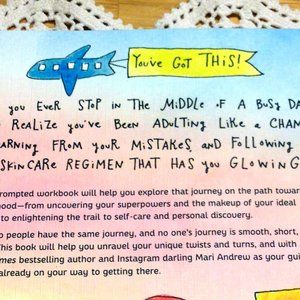 You've Got This!
you EVER STOP IN THE MiDDLE oF A BUSY DA
REALIZE you'VE BEEN ADULTiNG LiKE A CHAN
ARNiNG FROM YouR MiSTAKES AND FoLLOWiNG
SKiNCARE REGiMEN THAT HAS You GLOWiNG
rompted workbook will help you explore that journey on the path towar
ood—from uncovering your superpowers and the makeup of your ideal
to enlightening the trail to self-care and personal discovery.
o people have the same journey, and no one's journey is smooth, short,
This book will help you unravel your unique twists and turns, and with
mes bestselling author and Instagram darling Mari Andrew as your gui
already on your way to getting there.